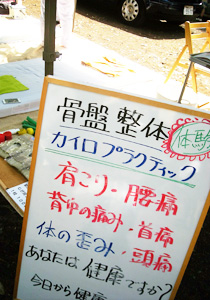 骨盤 整体
体験
カイロプラクティック
肩こり・腰痛
背中の痛み・首痛
体の歪み・頭痛
あなたは 健康ですか?
今日から健康